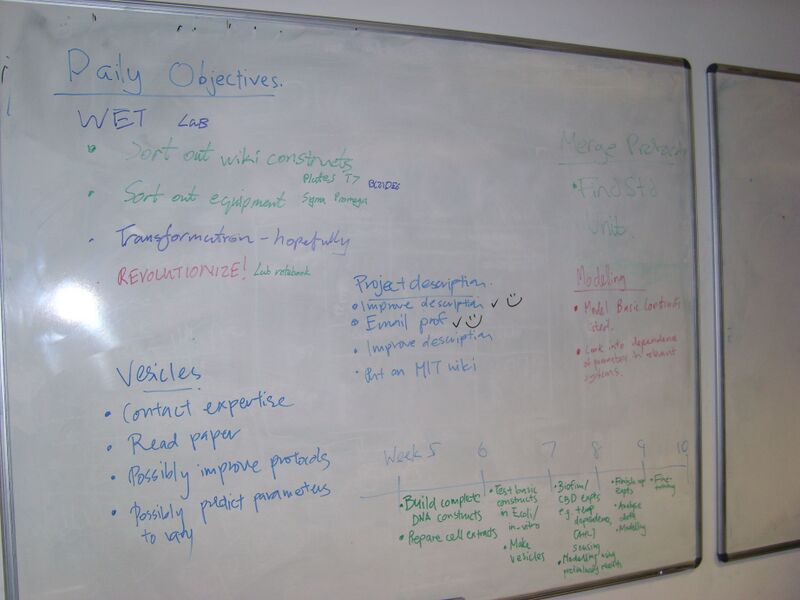 Daily Objectives.
WET Lab
• Sort out wiki constructs
Plates T7 BL21DE3
• Sort out equipment Sigma Promega
• Transformation - hopefully
• REVOLUTIONIZE! Lab notebook
Merge Protocols
• Find Std
Unit
Project description.
• Improve description ✓ ☺
• Email prof ✓ ☺
• Improve description
• Put on MIT wiki
Modelling
• Model Basic Constructs
• Look into dependence
of parameters in relevant
systems.
Vesicles
• Contact expertise
• Read paper
• Possibly improve protocols
• Possibly predict parameters
to vary
Week 5 6 7 8 9 10
• Build complete
DNA constructs
• Prepare cell extracts
• Test basic
constructs
in Ecoli/
in-vitro
• Make
vesicles
• Biofilm/
CBD expts
e.g. temp
dependence,
[AHL]
sensing
• Modelling using
preliminary results
• Finish up
expts
• Analyse
data
• Modelling
• Fine-
tuning